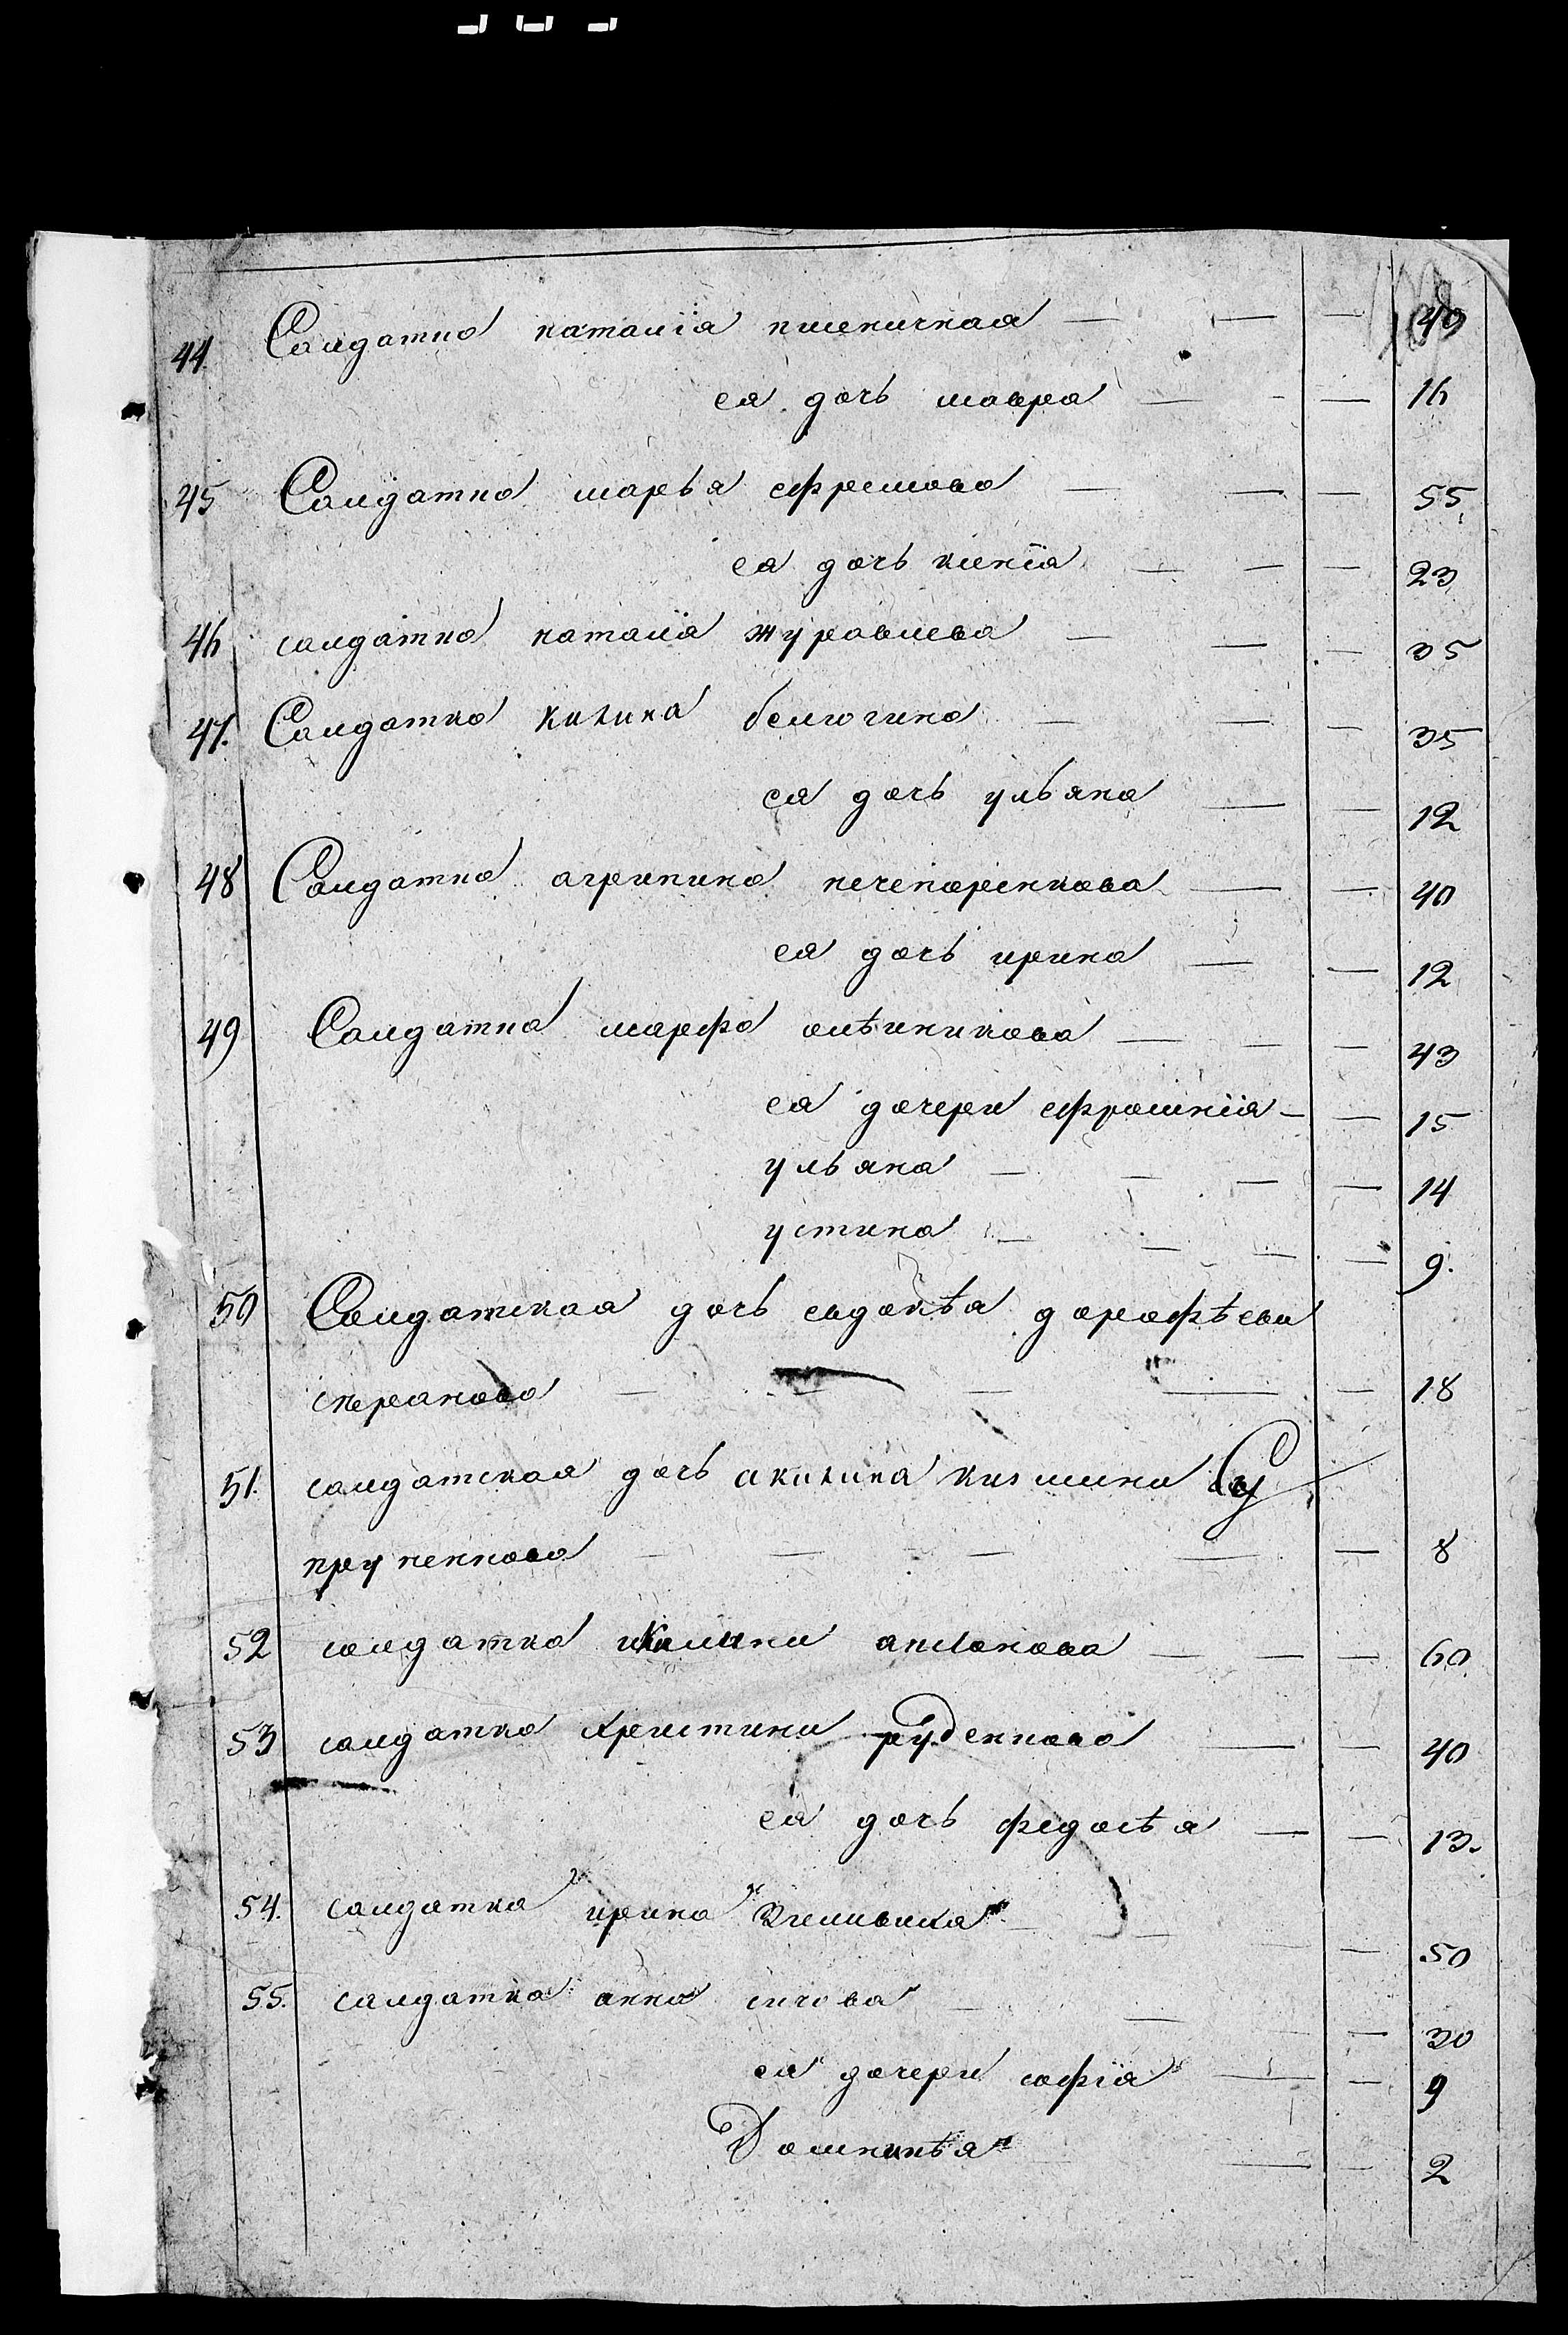 44. Солдатка наталiя пшеничная — — — 40
ея дочь мавра — — — 16
45 Солдатка марья ефремова — — — 55
ея дочь ксенiя — — — 23
46 солдатка наталiя журавлева — — — 35
47. Солдатка килина белогина — — — 35
ея дочь ульяна — — 12
48 Солдатка агрипина нечепоренкова — — 40
ея дочь ирина — — 12
49 Солдатка марфа олѣиникова — — — 43
ея дочери ефромнiя — — 15
ульяна — — — — 14
устина — — — — 9.
50 Солдатская дочь евдокѣя дорофѣева
сперанова — — — — — 18
51. солдатская дочь акилина кизмина Су
пруненкова — — — — — 8
52 солдатка антонова — — — 60
53 солдатка христина руденкова — — 40
ея дочь федосѣя — — 13.
54. солдатка ирина — — — 50
55. солдатка анна сичова — — — 30
ея дочери софiя — — 9
Домникѣя — — 2